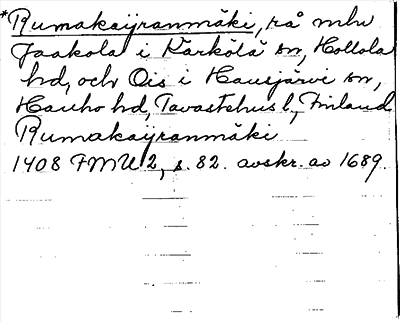 *Rumakaijranmäki, rå mlw
Jaakola i Kärkölä sn, Hollola
hd, och Ois i Hausjärvi sn,
Hauho hd, Tavastehus l., Finland
Rumakaijranmäki
1408 FMU 2, s. 82. avskr. av 1689.